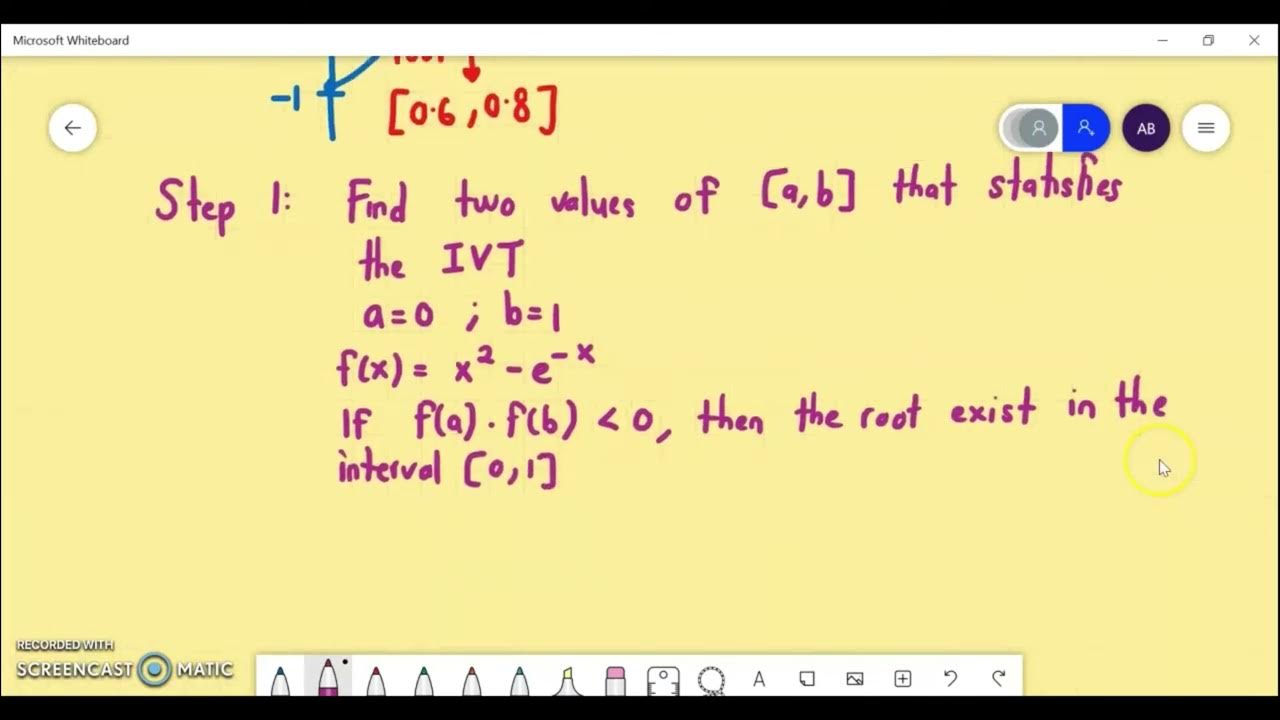 Microsoft Whiteboard
-1
[0.6, 0.8]
AB
Step 1: Find two values of [a,b] that statisfies
the IVT
a=0 ; b=1
f(x) = x² - e⁻ˣ
If f(a) · f(b) < 0, then the root exist in the
interval [0,1]
RECORDED WITH
SCREENCAST MATIC
A